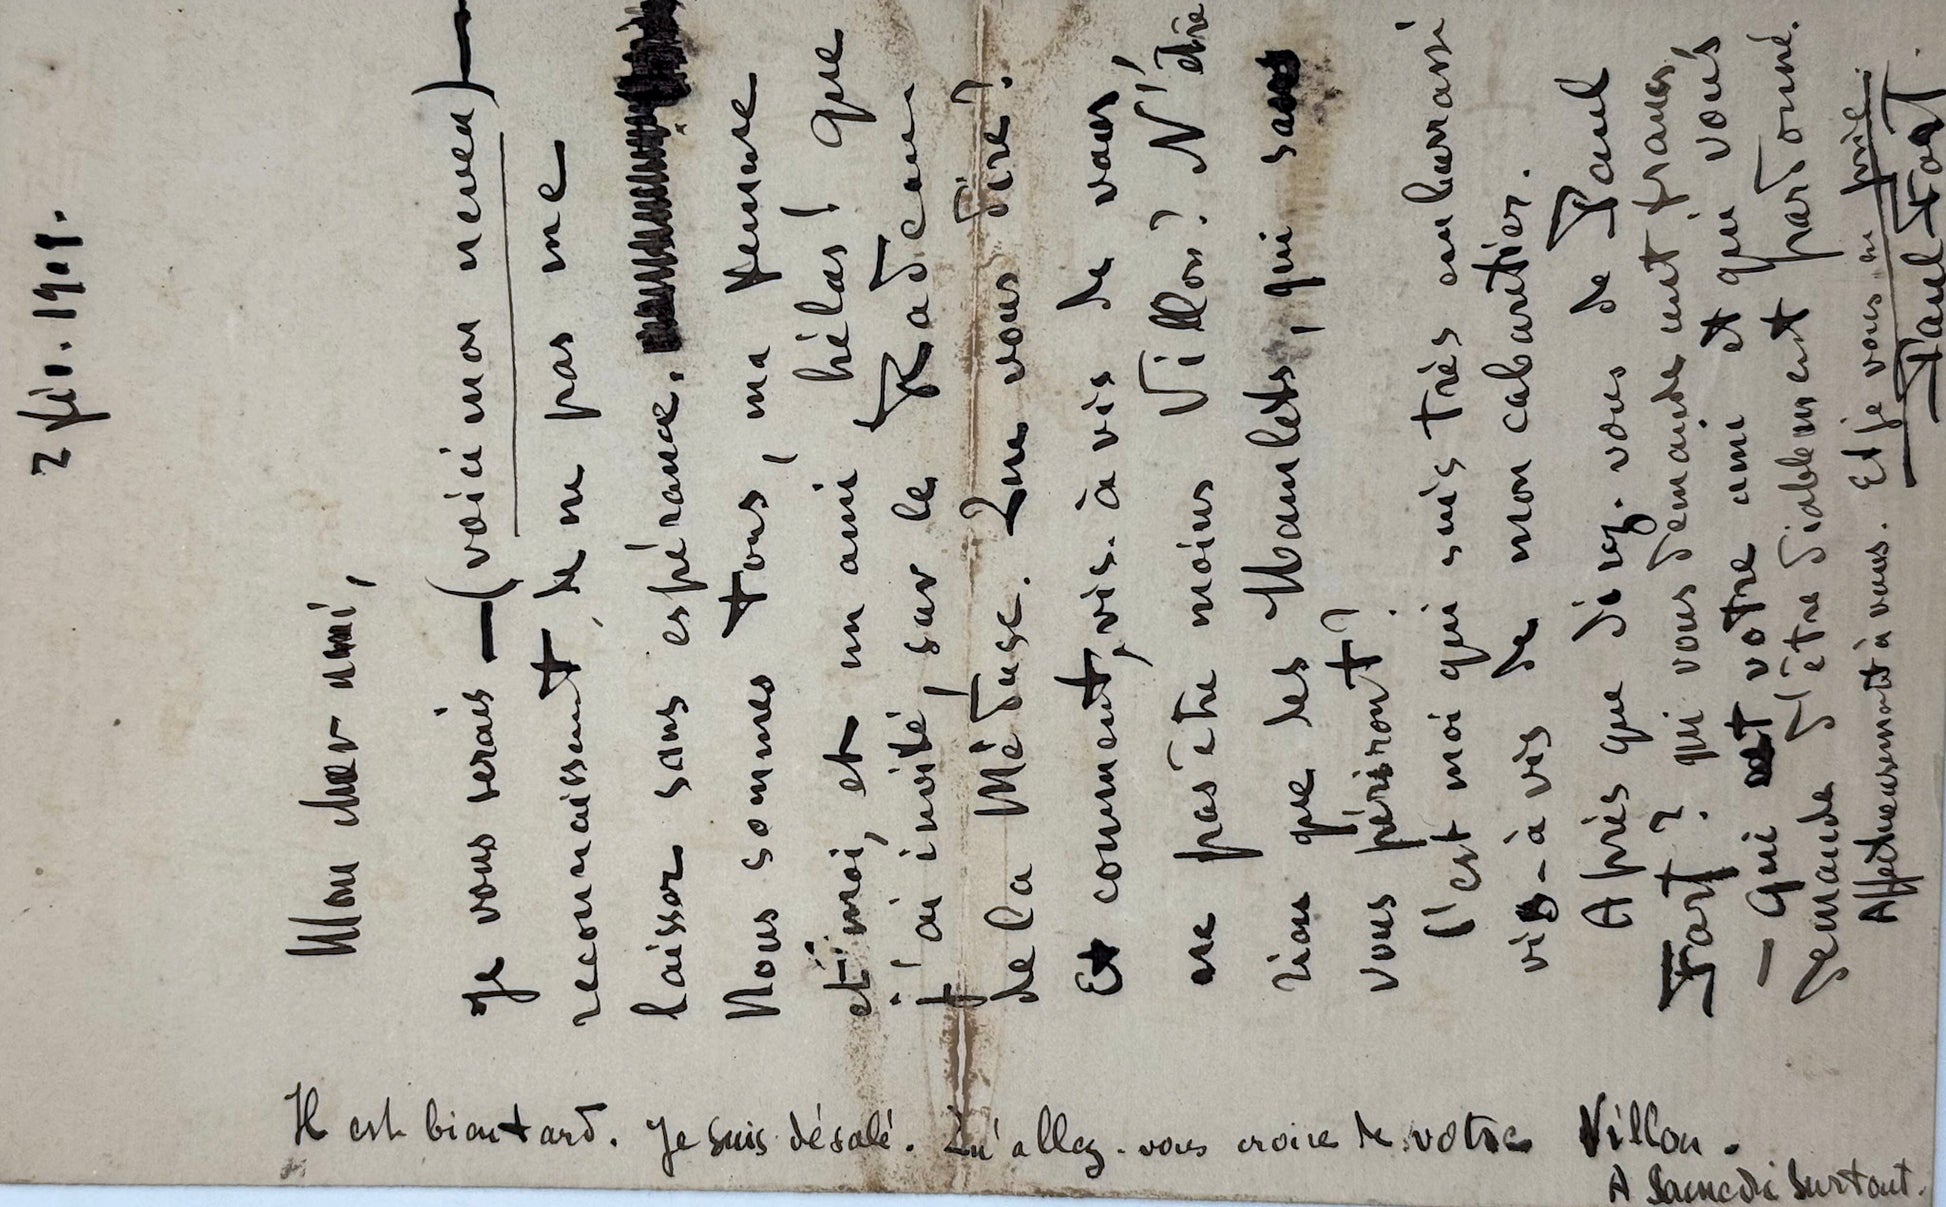 2 fév. 1909.
Mon cher ami,
Je vous serais — (voici mon neveu) —
reconnaissant de ne pas me
laisser sans espérance.
Nous sommes tous, ma femme
et moi, et un ami hélas! que
j'ai invité, sur le Radeau
de la Méduse. Que vous dire?
Et comment, vis-à-vis de vous,
ne pas être moins Villon? N'être
rien que les Hamlets, qui
vous périront?
C'est moi qui suis très embarrassé
vis-à-vis de mon cabaretier.
Après que direz-vous de Paul
Fort? qui vous demande cent francs
— qui est votre ami et qui vous
demande d'être diablement pardonné.
Affectueusement à vous. Et je vous en prie.
Paul Fort.
Il est bien tard. Je suis désolé. Qu'allez-vous croire de votre Villon.
A Samedi surtout.